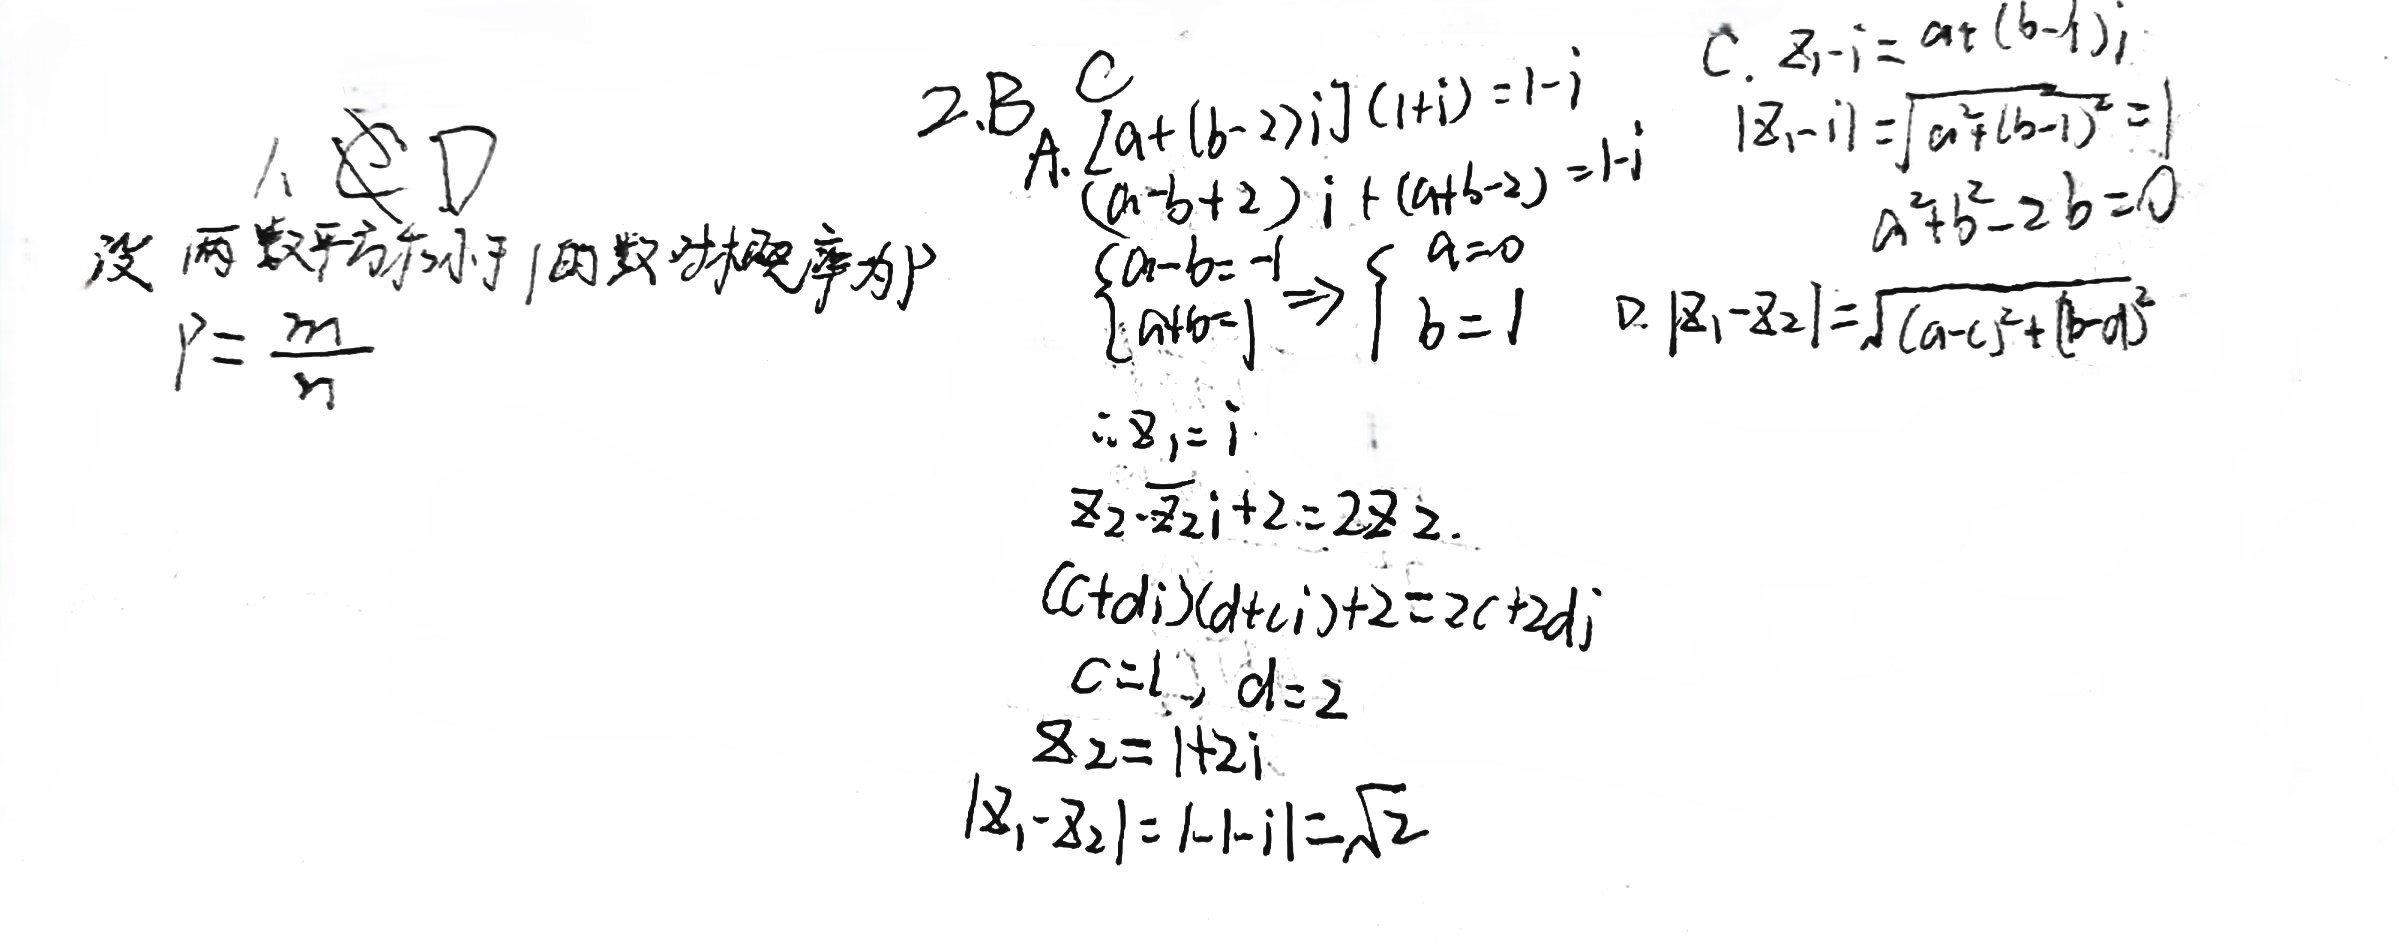 1. D
设两数平方和小于1的数对概率为P
P = m/n
2. B C
A. [a+(b-2)i](1+i)=1-i
(a-b+2)i+(a+b-2)=1-i
{a-b=-1 a+b=1 ⇒ {a=0 b=1
∴z₁=i
z₂·z̅₂i+2=2z₂.
(c+di)(d+ci)+2=2c+2di
c=1, d=2
z₂=1+2i
|z₁-z₂|=|-1-i|=√2
C. z₁-i=a+(b-1)i
|z₁-i|=√(a²+(b-1)²)=1
a²+b²-2b=0
D. |z₁-z₂|=√((a-c)²+(b-d)²)